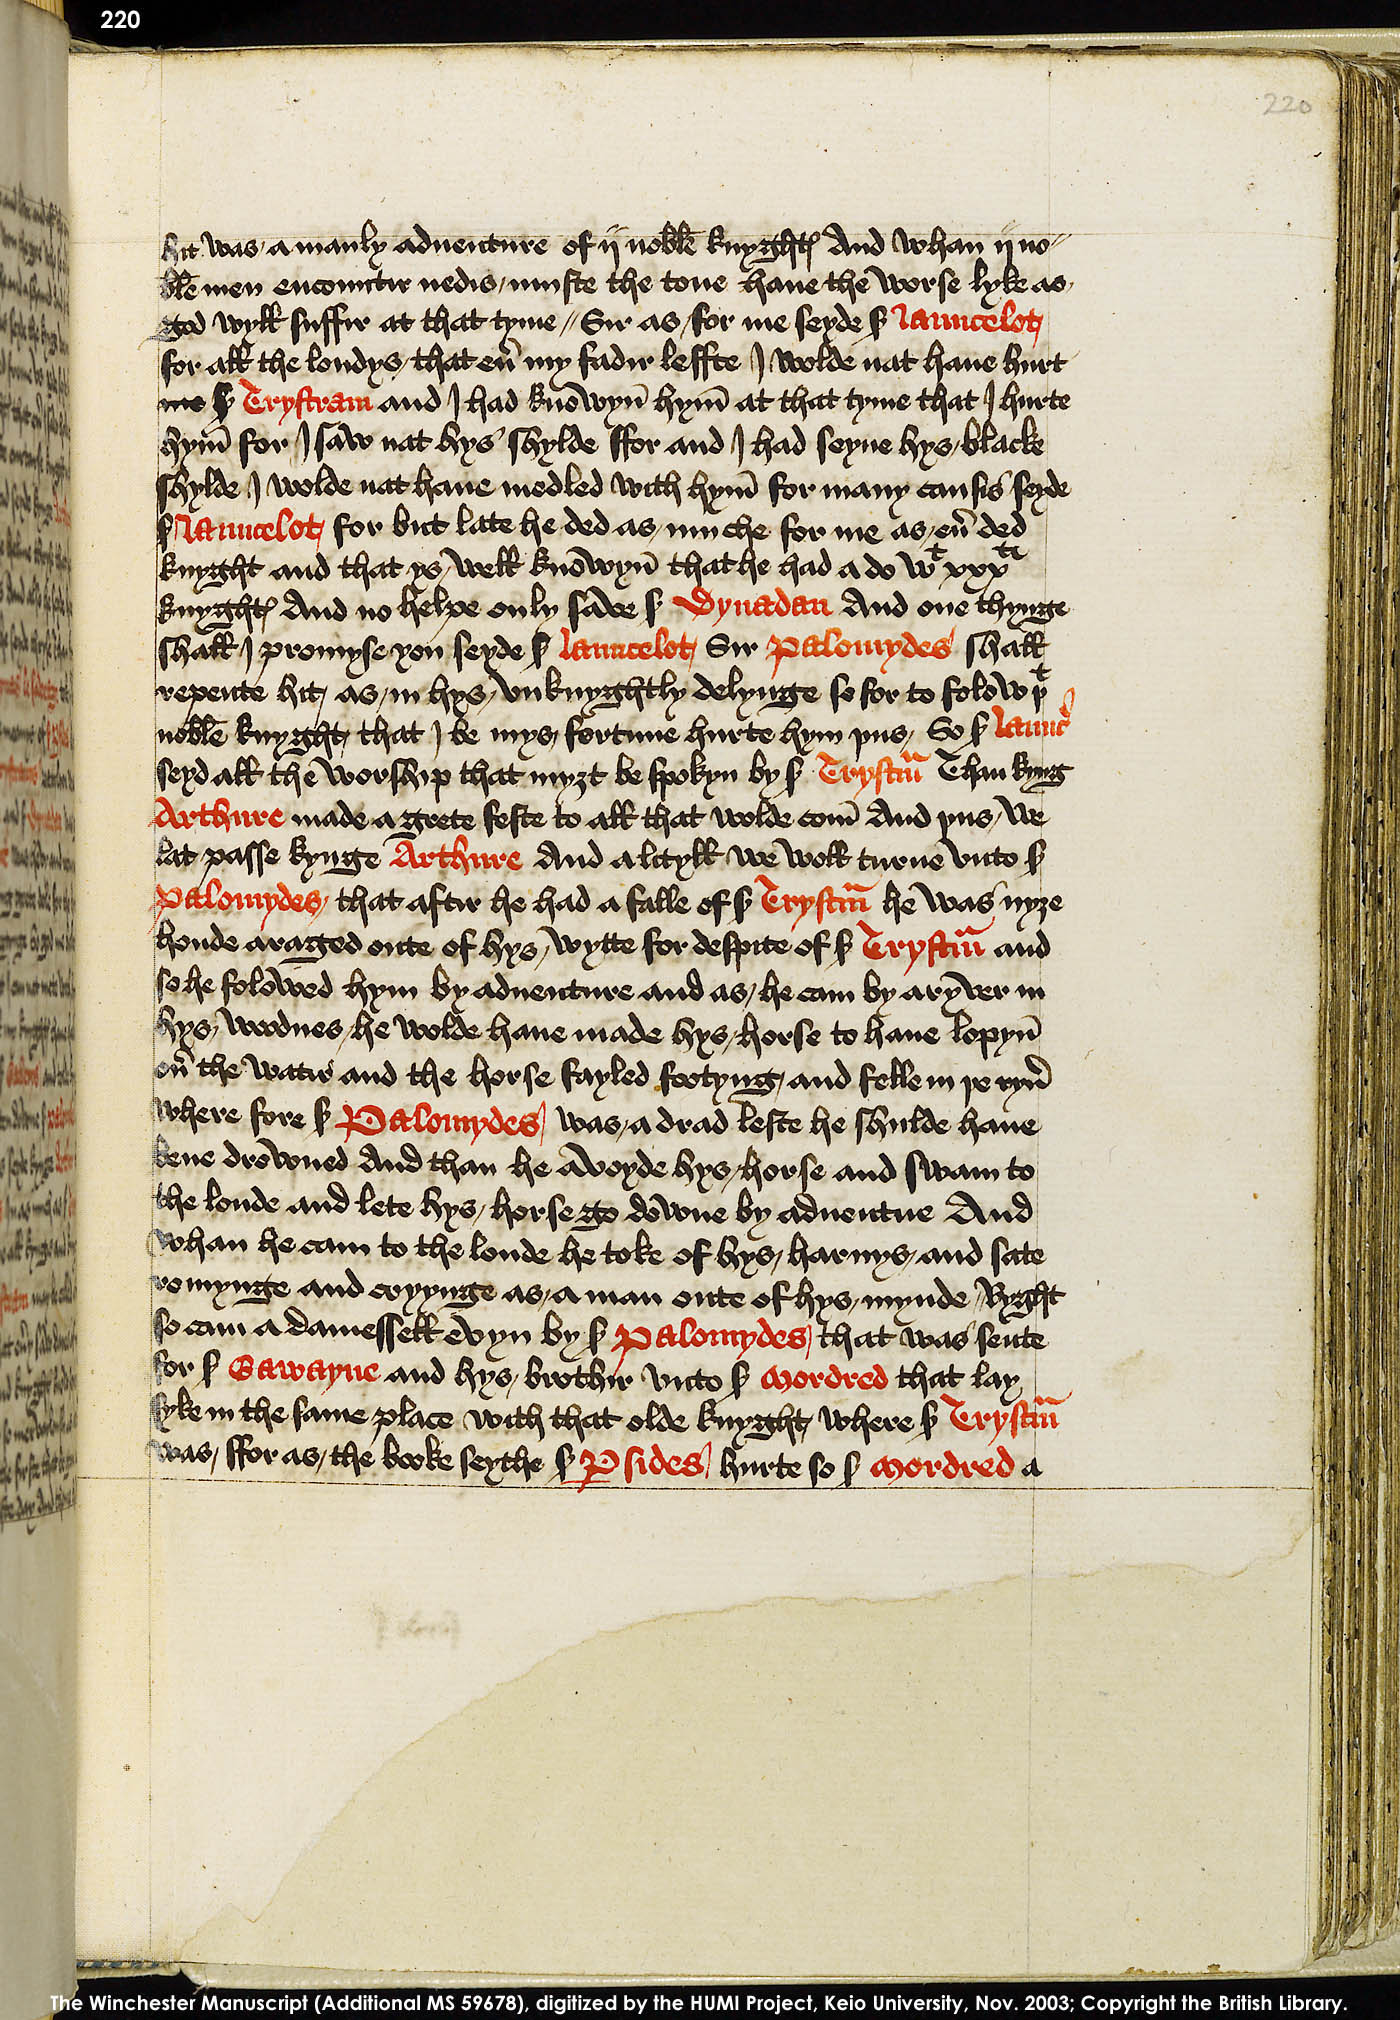 220
220
hit was a manly aduenture of ij noble knyghtes And whan ij no-
ble men encountir nedis muste the tone haue the worse lyke as
god wyll suffir at that tyme // Sir as for me seyde sir launcelot
for all the londys that eu̾ my fadir leffte I wolde nat haue hurt
me sir Trystram and I had knowyn̄ hym̄ at that tyme that I hurte
hym̄ for I saw nat hys shylde ffor and I had seyne hys blacke
shylde I wolde nat haue medled with hym̄ for many causis seyde
sir launcelot for but late he ded as muche for me as eu̾ ded
knyght and that ys well knowyn̄ that he had a do wᵗ xxxᵗⁱ
knyghtes And no helpe only save sir Dynadan And one thynge
shall I promyse you seyde sir launcelot Sir Palomydes shall
repente hit as in hys vnknyghtly delynge so for to folow þᵗ
noble knyght that I be mysfortune hurte hym þus So sir launc̾
seyd all the worship that myȝt be spokyn by sir Trystm̄ Than kyng
Arthure made a grete feste to all that wolde com̄ And þus we
lat passe kynge Arthure And a lityll we woll turne vnto sir
Palomydes that aftir he had a falle of sir Trystm̄ he was nyȝe
honde araged oute of hys wytte for despite of sir Trystm̄ and
so he folowed hym by aduenture and as he cam by a ryver in
hys woodnes he wolde haue made hys horse to haue lopyn̄
ou̾ the watir and the horse fayled footyng and felle in þe ryu̾
where fore sir Palomydes was adrad leste he shulde haue
bene drowned And than he avoyde hys horse and swam to
the londe and lete hys horse go downe by aduentue And
whan he cam to the londe he toke of hys harnys and sate
romynge and cryynge as a man oute of hys mynde Ryght
so cam a damesell evyn by sir Palomydes that was sente
for sir Gawayne and hys brothir vnto sir Mordred that lay
syke in the same place with that olde knyght where sir Trystm̄
was ffor as the booke seythe sir Psides hurte so sir Mordred a
The Winchester Manuscript (Additional MS 59678), digitized by the HUMI Project, Keio University, Nov. 2003; Copyright the British Library.